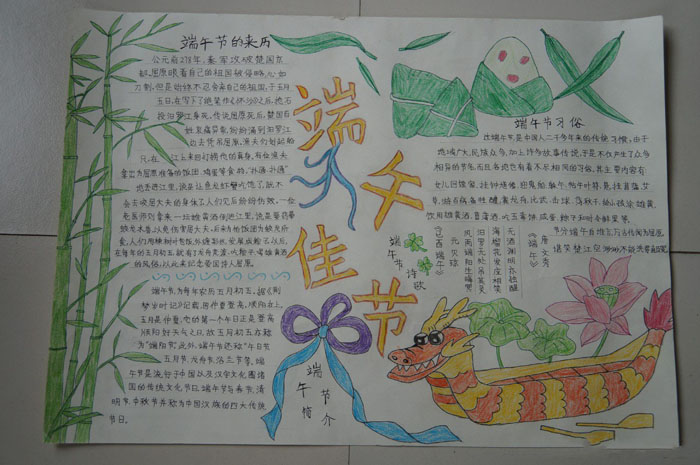 端午节的来历
公元前278年,秦军攻破楚国京
都。屈原眼看自己的祖国被侵略,心如
刀割,但是始终不忍舍弃自己的祖国,于五月
五日,在写下了绝笔作《怀沙》之后,抱石
投汨罗江身死,传说屈原死后,楚国百
姓哀痛异常,纷纷涌到汨罗江
边去凭吊屈原。渔夫们划起船
只,在江上来回打捞他的真身,有位渔夫
拿出为屈原准备的饭团、鸡蛋等食物,“扑通、扑通”
地丢进江里,说是让鱼龙虾蟹吃饱了,就不
会去咬屈大夫的身体了。人们见后纷纷仿效,一位
老医师则拿来一坛雄黄酒倒进江里,说是要药晕
蛟龙水兽,以免伤害屈大夫,后来为怕饭团为蛟龙所
食,人们用楝树叶包饭,外缠彩丝,发展成粽子,以后,
在每年的五月初五,就有了龙舟竞渡、吃粽子、喝雄黄酒
的风俗,以此来纪念爱国诗人屈原。
端午节,为每年农历五月初五,据《荆
楚岁时记》记载,因仲夏登高,顺阳在上,
五月是仲夏,它的第一个午日正是登高
顺阳好天气之日,故五月初五亦称
为“端阳节”,此外,端午节还称“午日节
、五月节、龙舟节、浴兰节等,端
午节是流行于中国以及汉字文化圈诸
国的传统文化节日,端午节与春节、清
明节、中秋节并称为中国汉族的四大传统
节日。
端午佳节
端午节习俗
过端午节,是中国人二千多年来的传统习惯,由于
地域广大,民族众多,加上许多故事传说,于是不仅产生了众多
相异的节名,而且各地也有着不尽相同的习俗,其主要内容有
女儿回娘家,挂钟馗像,
饮用雄黄酒、菖蒲酒,吃五毒饼、咸蛋、粽子和时令鲜果等,
《端午》
唐 文秀
节分端午自谁言,万古传闻为屈原。
堪笑楚江空渺渺,不能洗得直臣冤。
《己酉端午》
元 贝琼
风雨端阳生晦冥
汨罗无处吊英灵
海榴花发应相笑
无酒渊明亦独醒
端午节诗歌
端午节简介